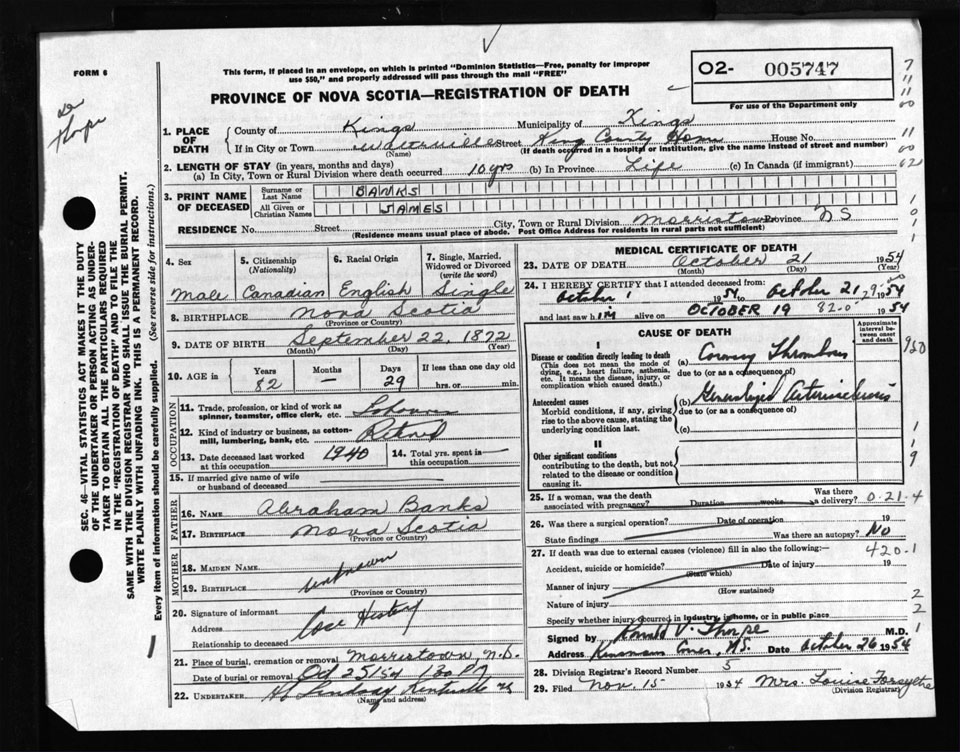 FORM 6
This form, if placed in an envelope, on which is printed "Dominion Statistics—Free, penalty for improper
use $50," and properly addressed will pass through the mail "FREE"
O2- 005747
For use of the Department only
PROVINCE OF NOVA SCOTIA—REGISTRATION OF DEATH
de
Thorpe
7
11
11
00
11
00
62
1. PLACE OF DEATH
County of Kings Municipality of Kings
If in City or Town Waterville Street King County Home House No.
(Name) (If death occurred in a hospital or institution, give the name instead of street and number)
2. LENGTH OF STAY (in years, months and days)
(a) In City, Town or Rural Division where death occurred 10 yrs (b) In Province Life (c) In Canada (if immigrant)
3. PRINT NAME OF DECEASED
Surname or Last Name BANKS
All Given or Christian Names JAMES
RESIDENCE No. Street City, Town or Rural Division Morristown Province N S
(Residence means usual place of abode. Post Office Address for residents in rural parts not sufficient)
4. Sex
Male
5. Citizenship
(Nationality)
Canadian
6. Racial Origin
English
7. Single, Married,
Widowed or Divorced
(write the word)
Single
8. BIRTHPLACE Nova Scotia
(Province or Country)
9. DATE OF BIRTH September 22 1872
(Month) (Day) (Year)
10. AGE in
Years Months Days If less than one day old
82 — 29 hrs. or min.
OCCUPATION
11. Trade, profession, or kind of work as
spinner, teamster, office clerk, etc. Labourer
12. Kind of industry or business, as cotton-
mill, lumbering, bank, etc. Retired
13. Date deceased last worked
at this occupation 1940
14. Total yrs. spent in
this occupation
15. If married give name of wife
or husband of deceased
FATHER
16. NAME Abraham Banks
17. BIRTHPLACE Nova Scotia
(Province or Country)
MOTHER
18. MAIDEN NAME
unknown
19. BIRTHPLACE
(Province or Country)
20. Signature of informant
Address Case History
Relationship to deceased
21. Place of burial, cremation or removal Morristown N.S.
Date of burial or removal Oct 25/54
22. UNDERTAKER Lindsay Kentville NS
(Name and address)
MEDICAL CERTIFICATE OF DEATH
23. DATE OF DEATH October 21 1954
(Month) (Day) (Year)
24. I HEREBY CERTIFY that I attended deceased from:
October 1 1954 to October 21 1954
and last saw him alive on OCTOBER 19 1954
82.0
CAUSE OF DEATH
Approximate
interval be-
tween onset
and death
I
Disease or condition directly leading to death
(This does not mean the mode of
dying, e.g., heart failure, asthenia,
etc. It means the disease, injury, or
complication which caused death.)
(a) Coronary Thrombosis
due to (or as a consequence of)
Antecedent causes
Morbid conditions, if any, giving
rise to the above cause, stating the
underlying condition last.
(b) Generalized Arteriosclerosis
due to (or as a consequence of)
(c)
II
Other significant conditions
contributing to the death, but not
related to the disease or condition
causing it.
25. If a woman, was the death
associated with pregnancy? Duration weeks Was there
a delivery?
0.21.4
26. Was there a surgical operation? Date of operation 19
State findings Was there an autopsy? No
27. If death was due to external causes (violence) fill in also the following:—
420.1
Accident, suicide or homicide? Date of injury 19
(State which)
Manner of injury
(How sustained)
Nature of injury
Specify whether injury occurred in industry, in home, or in public place
Signed by Ronald V. Thorpe M.D.
Address Kinsmans Corner, N.S. Date October 26 1954
28. Division Registrar's Record Number 5
29. Filed Nov. 15 1954 Mrs. Louise Forsythe
(Division Registrar)
SEC. 46—VITAL STATISTICS ACT MAKES IT THE DUTY
OF THE UNDERTAKER OR PERSON ACTING AS UNDER-
TAKER TO OBTAIN ALL THE PARTICULARS REQUIRED
IN THE "REGISTRATION OF DEATH" AND TO FILE THE
SAME WITH THE DIVISION REGISTRAR WHO SHALL ISSUE THE BURIAL PERMIT.
WRITE PLAINLY WITH UNFADING INK. THIS IS A PERMANENT RECORD.
Every item of information should be carefully supplied. (See reverse side for instructions.)